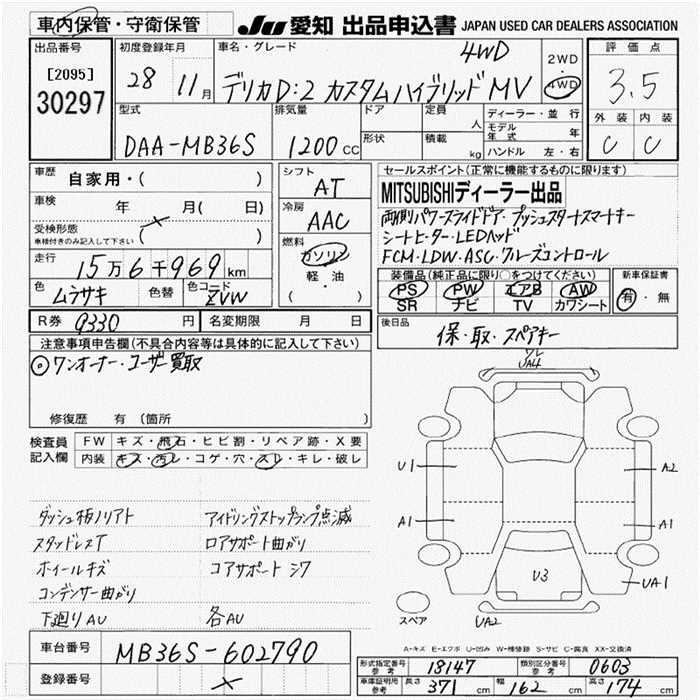 車内保管・守衛保管
JU 愛知 出品申込書 JAPAN USED CAR DEALERS ASSOCIATION
出品番号
[2095]
30297
初度登録年月
28 11月
車名・グレード
4WD
デリカD:2 カスタムハイブリッド MV
2WD
・
4WD
評価点
3.5
外装 内装
C C
型式
DAA-MB36S
排気量
1200 CC
ドア
形状
定員 人
積載 kg
ディーラー・並行
モデル年式 年
ハンドル 左・右
車歴 自家用・( )
車検 年 月( 日)
受検形態
車検付きのみ記入して下さい ( )
走行 15万6千969km
色 ムラサキ 色替 色コード ZVW
シフト
AT
冷房
AAC
燃料
ガソリン
軽・油
( )
セールスポイント(正常に機能するものに限ります)
MITSUBISHIディーラー出品
両側パワースライドドア・プッシュスタートスマートキー
シートヒーター・LEDヘッド
FCM・LDW・ASC・クルーズコントロール
装備品(純正品に限り○をつけてください)
PS PW エアB AW
SR ナビ TV カワシート
新車保証書
有・無
R券 9330 円 名変期限 月 日
後日品
保・取・スペアキー
注意事項申告欄(不具合内容等は具体的に記入して下さい)
◎ワンオーナー・ユーザー買取
修復歴 有(箇所 )
検査員
記入欄
FW キズ・飛石・ヒビ割・リペア跡・X要
内装 キズ・汚レ・コゲ・穴・スレ・キレ・破レ
ダッシュ板ノリアト アイドリングストップランプ点滅
スタッドレスT ロアサポート曲がり
ホイールキズ コアサポート シワ
コンデンサー曲がり
下廻りAU 各AU
ワレ
UA4
U1
A2
A1
A1
U3
UA1
スペア
UA2
A-キズ E-エクボ U-凹み W-補修跡 S-サビ C-腐食 XX-交換済
車台番号 MB36S-602790
登録番号
形式指定番号
参考
18147
類別区分番号
参考
0603
車庫証明用
参考
長さ 371 cm 幅 162 cm 高さ 174 cm